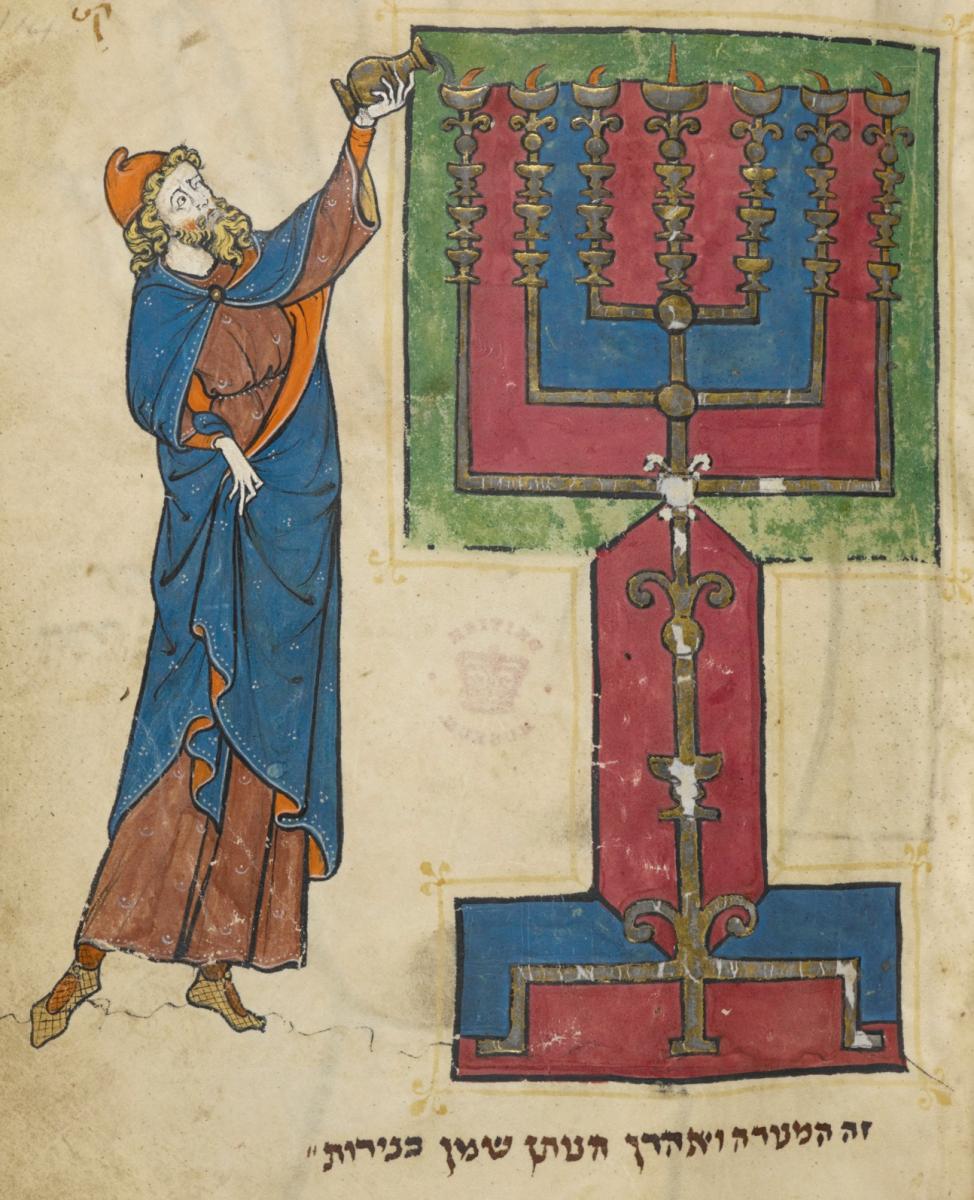 קט
BRITISH MUSEUM
זה המנורה ואהרן הנותן שמן בנירות